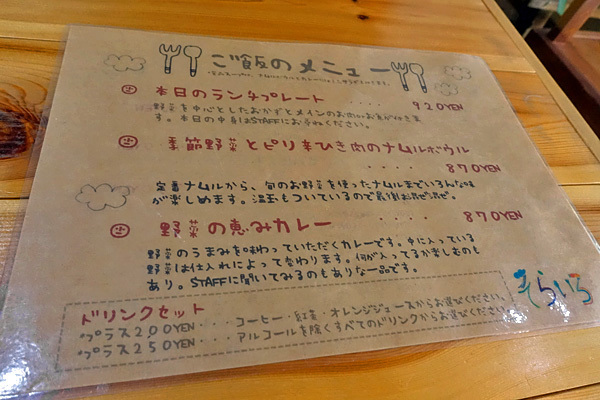 ご飯のメニュー
本日のランチプレート ···· 920YEN
野菜を中心としたおかずとメインのお肉いお魚が付きま
す。本日の中身はSTAFFにお尋ねください。
季節野菜とピリ辛ひき肉のナムルボウル
···· 870YEN
定番ナムルから、旬のお野菜を使ったナムルまでいろんな味
が楽しめます。温玉もついているので最後は混ぜ混ぜ。
野菜の恵みカレー ···· 870YEN
野菜のうまみを味わっていただくカレーです。中に入っている
野菜は仕入れによって変わります。何が入ってるか楽しむのも
あり。STAFFに聞いてみるのもありな一品です。
ドリンクセット
プラス200YEN ··· コーヒー・紅茶・オレンジジュースからお選びください。
プラス250YEN ··· アルコールを除くすべてのドリンクからお選びください
そらいろ